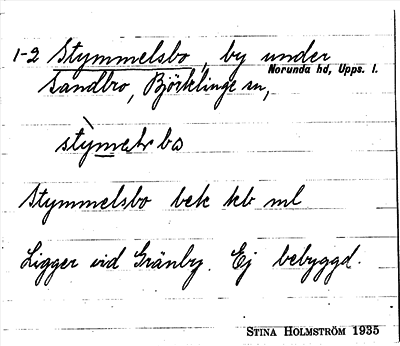 1-2 Stymmelsbo, by under
Norunda hd, Upps. l.
Sandbro, Björklinge sn,
Stymmelsbo bek kb ml
Ligger vid Gränby. Ej bebyggd.
STINA HOLMSTRÖM 1935